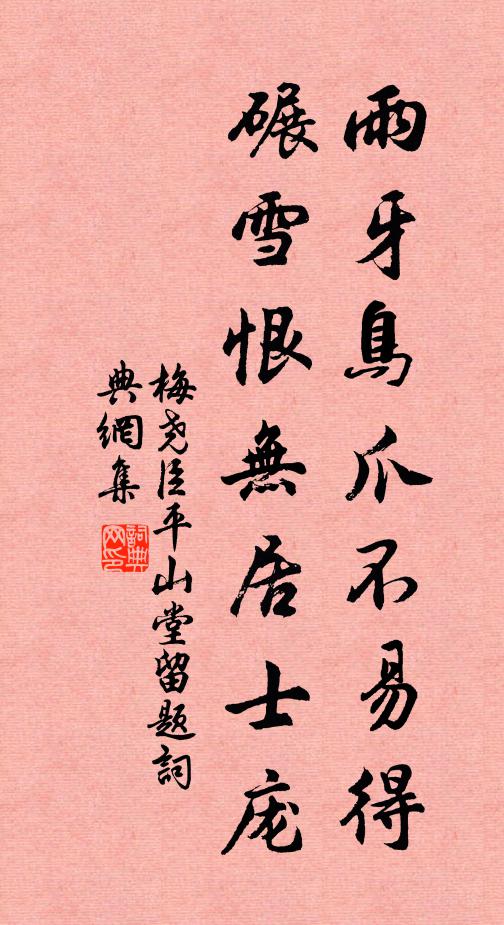 雨牙鳥爪不易得
碾雪恨無居士庬
梅堯臣平山堂留題詞
典網集
詞典
网印